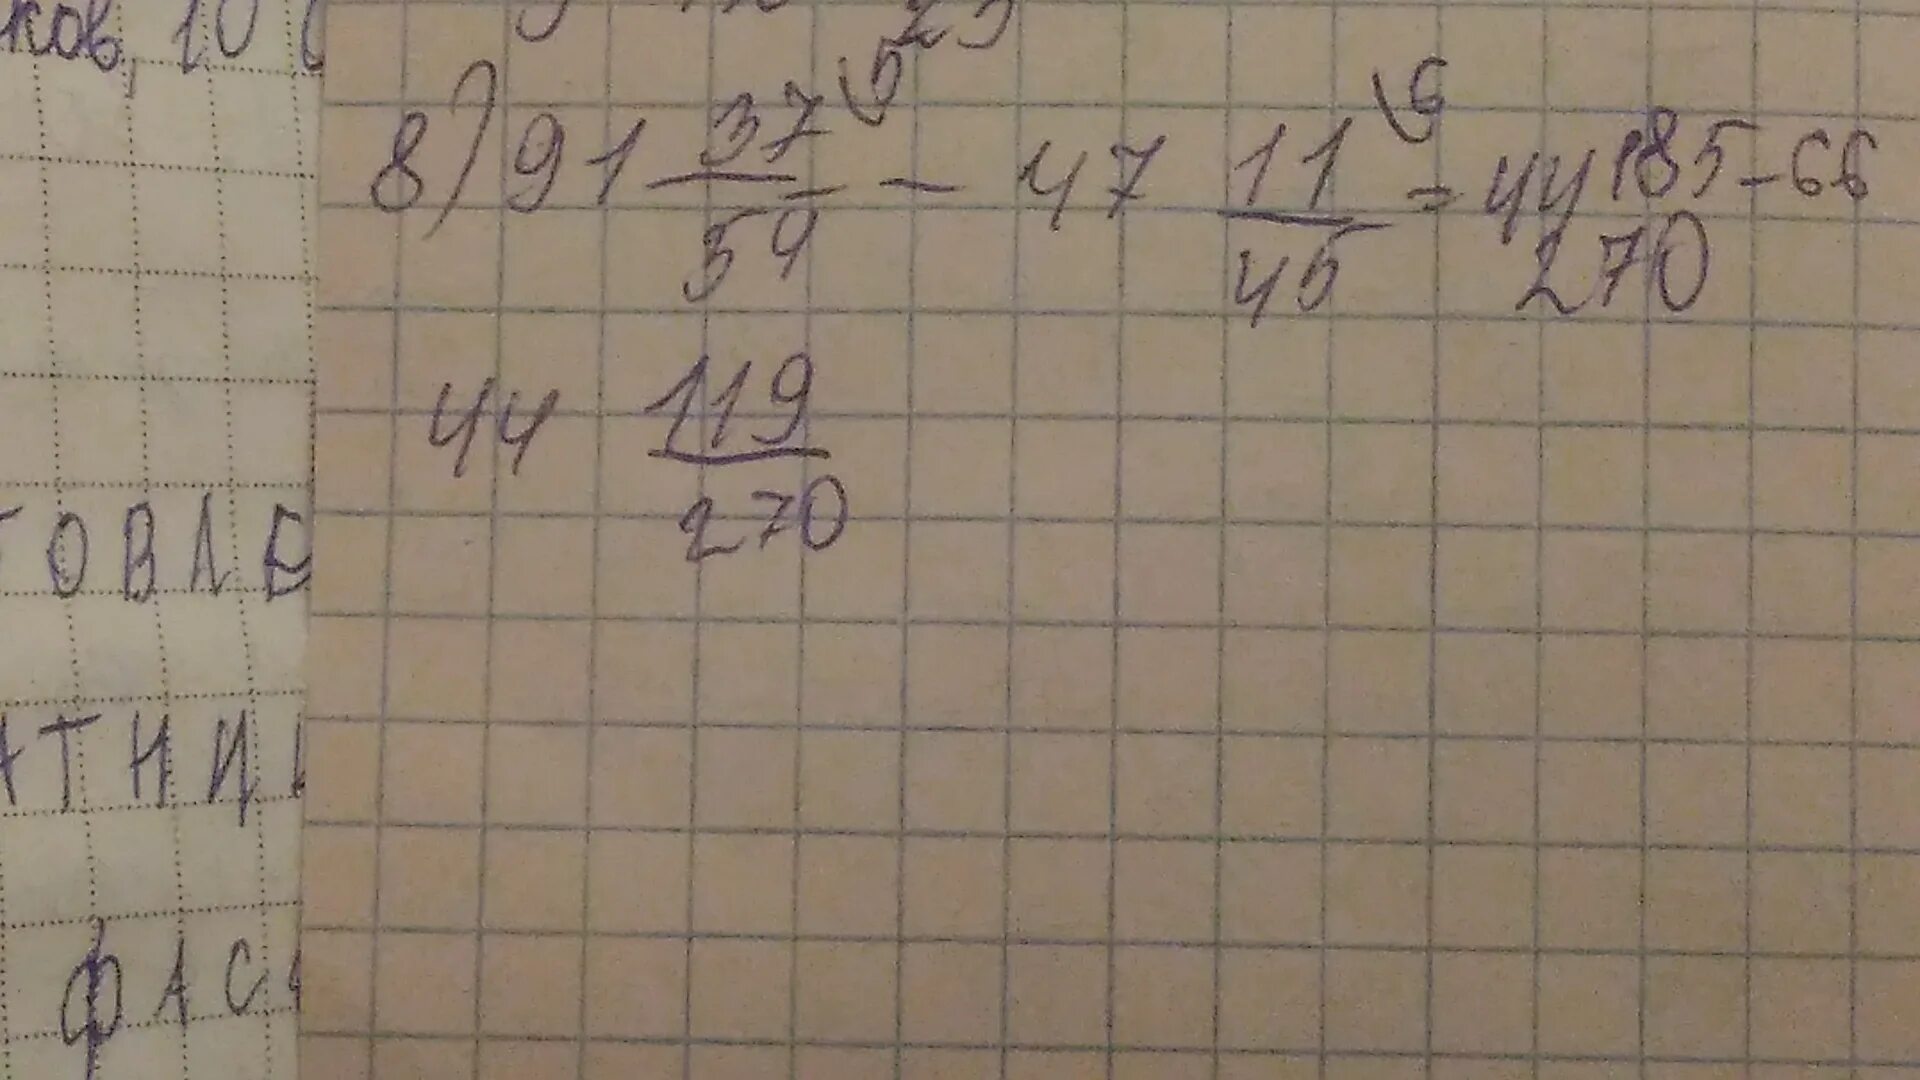 ков, 10
8) 91 37/54 ⁵ - 47 11/45 ⁶ = 44 185-66/270
44 119/270
ОВЛЕ
АТНИ
ФАС